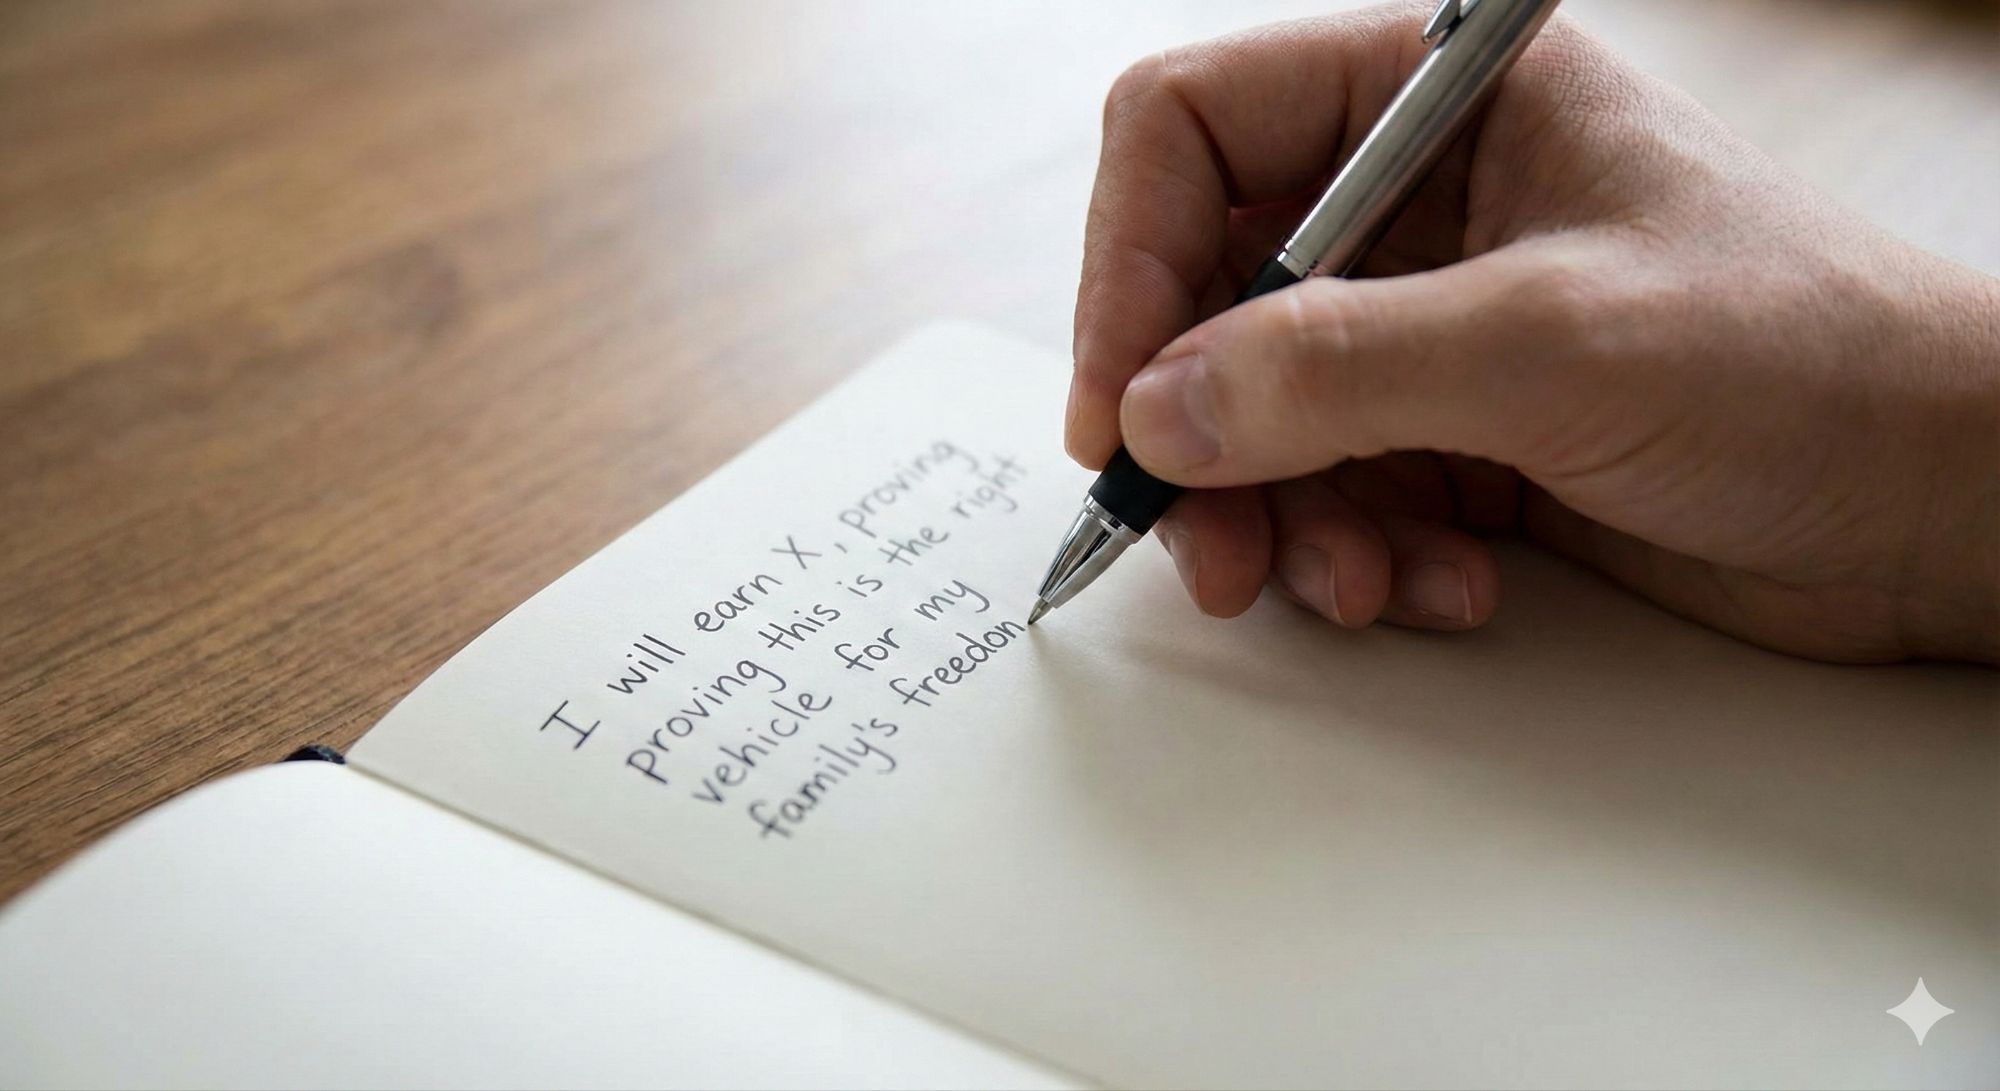 I will earn X, proving
proving this is the right
vehicle for my
family's freedon